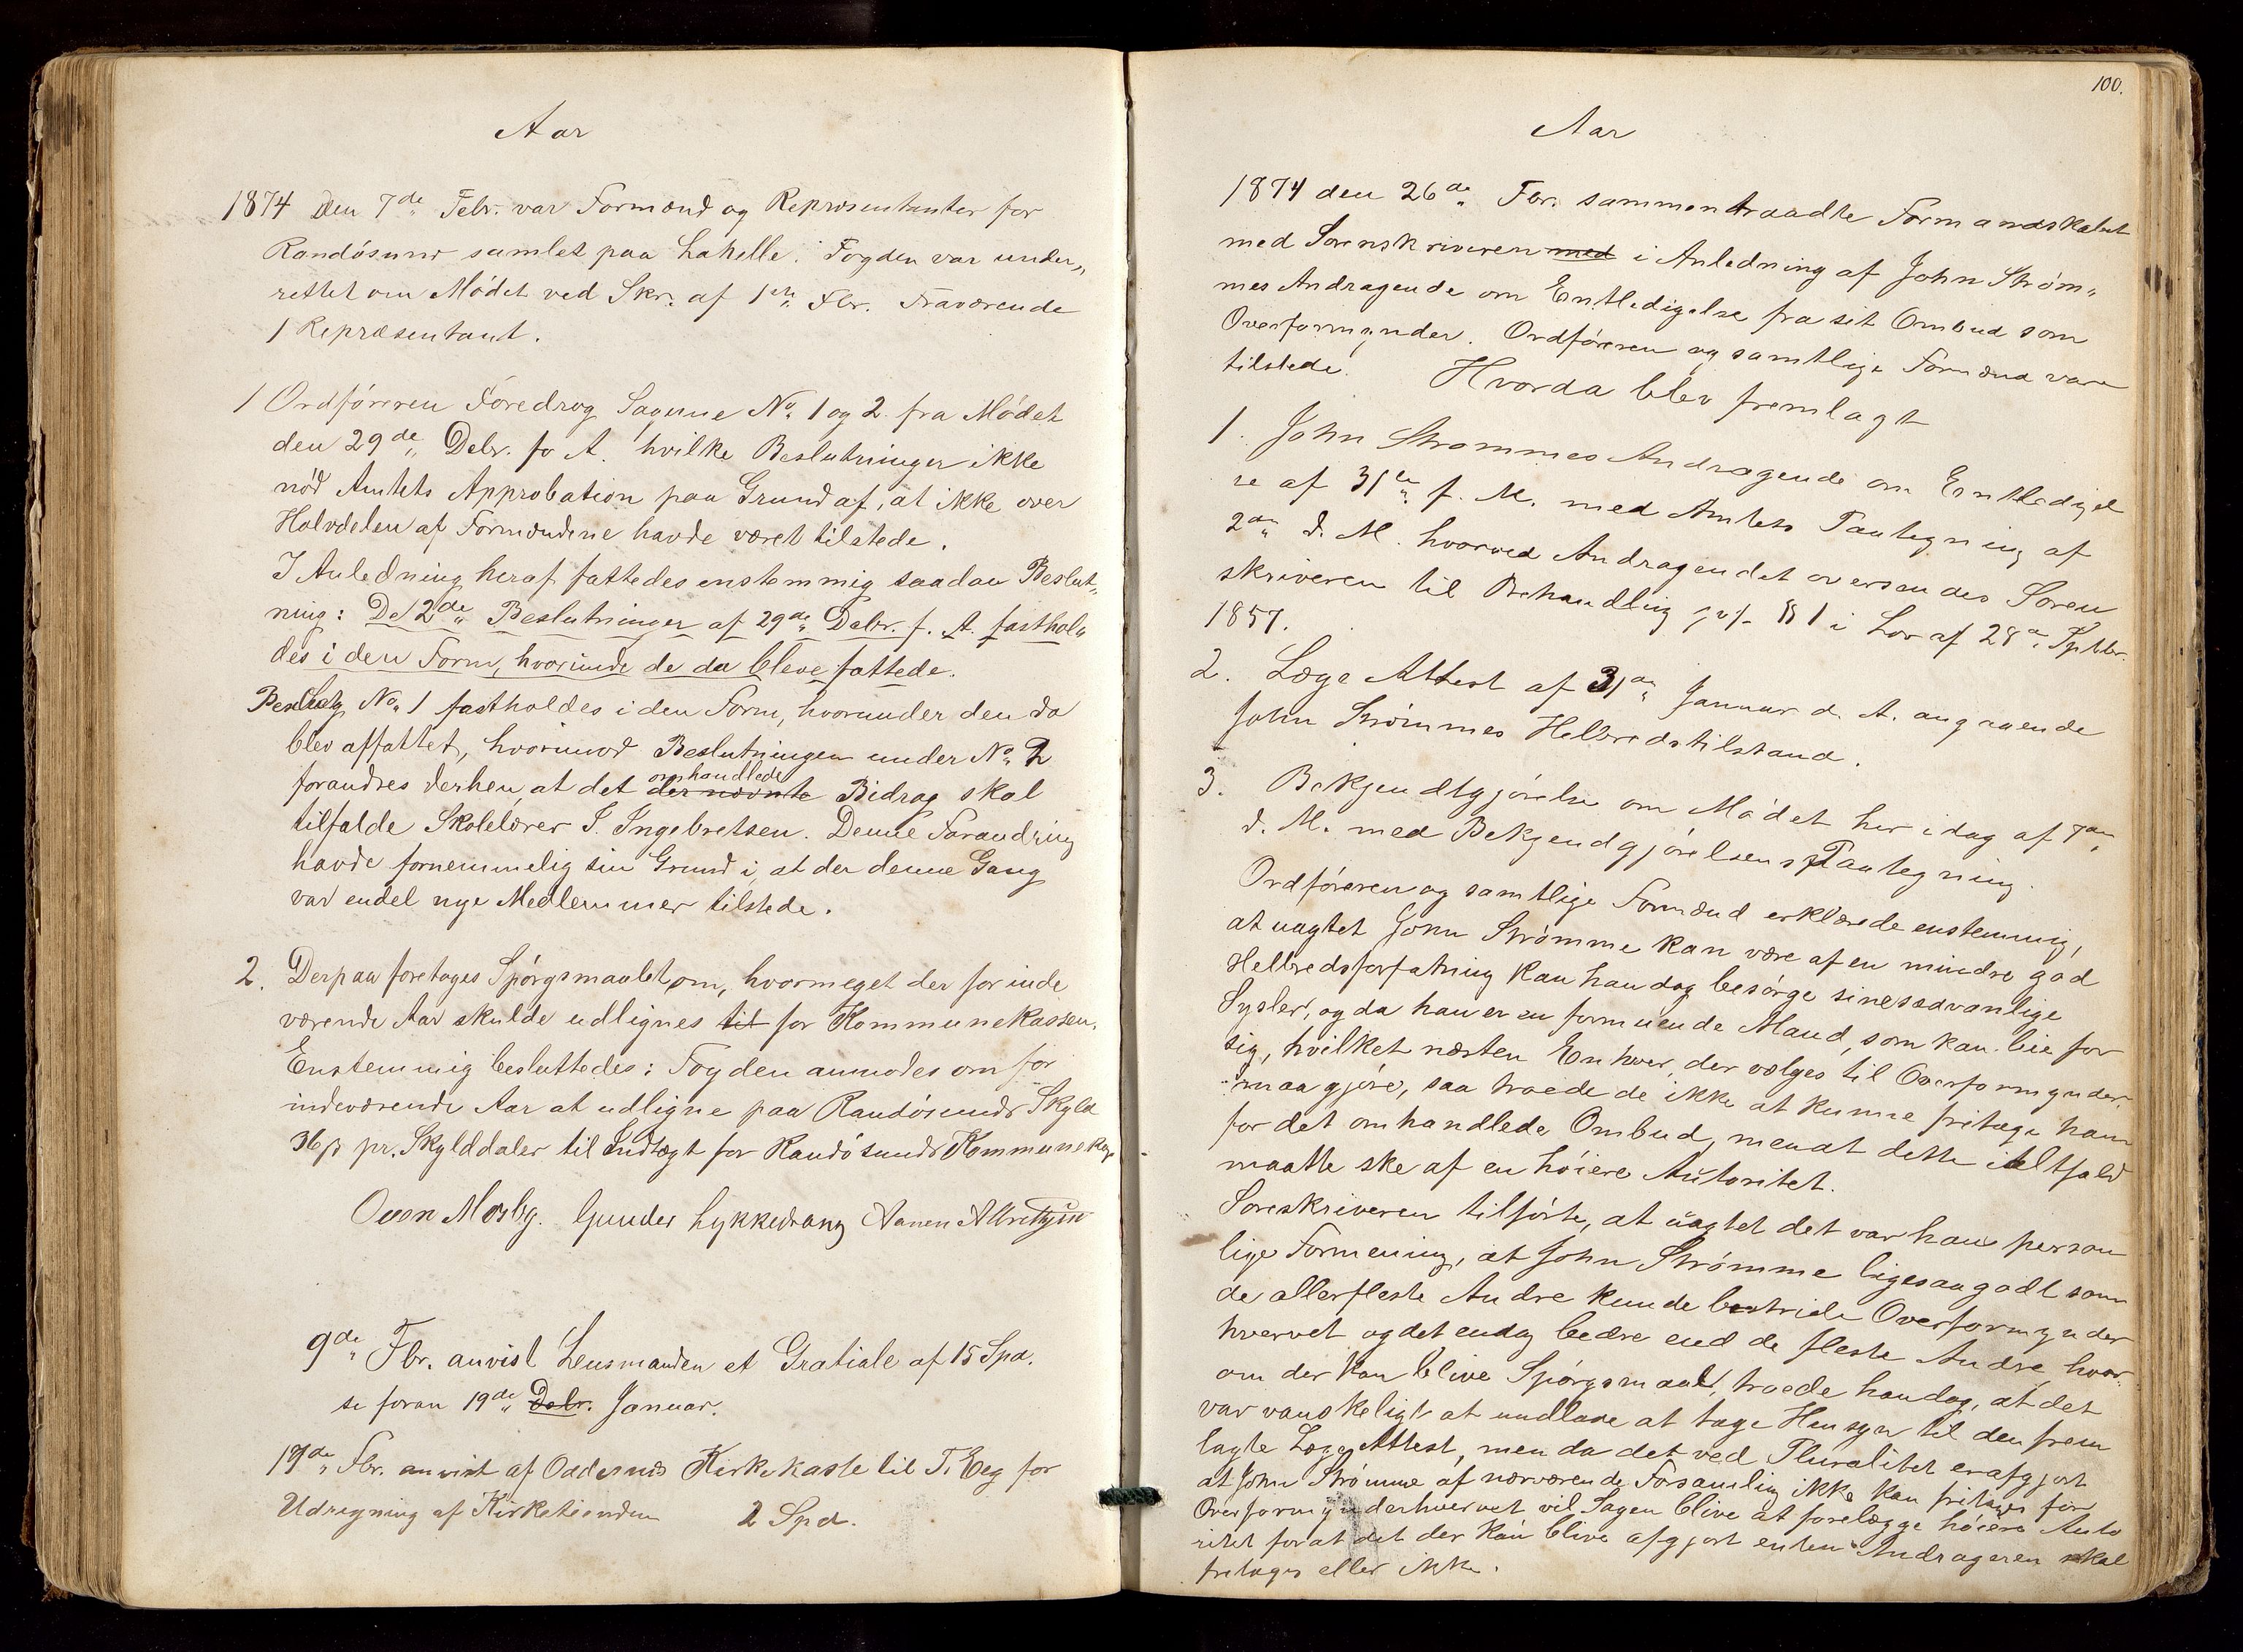 Aar
1874 Den 7de Febr. var Formænd og Repræsentanter for
Randøsund samlet paa Lahelle. Fogden var under„
rettet om Mødet ved Skr. af 1ste Fbr. Fraværende
1 Repræsentant.
1 Ordføreren Foredrog Sagerne No. 1 og 2 fra Mødet
den 29de Debr. fo A. hvilke Beslutninger ikke
nød Amtets Approbation paa Grund af, at ikke over
Halvdelen af Formændene havde været tilstede.
I Anledning heraf fattedes enstemmig saadan Beslut„
ning: De 2de Beslutninger af 29de Debr. f. A. fasthol„
des i den Form, hvorunde de da bleve fattede.
Beslutg No. 1 fastholdes i den Form, hvorunder den da
blev affattet, hvorimod Beslutningen under No. 2
forandres derhen, at det der nævnte omhandlede Bidrag skal
tilfalde Skolelærer S. Ingebretsen. Denne Forandring
havde fornemmelig sin Grund i, at der denne Gang
var endel nye Medlemmer tilstede.
2. Derpaa foretoges Spørgsmaalet om, hvormeget der for inde
værende Aar skulde udlignes til for Kommunekassen.
Enstemmig besluttedes: Fogden anmodes om for
indeværende Aar at udligne paa Randøsunds Skyld
36 ß pr. Skylddaler til Indtægt for Randøsunds Kommunekas
Oven Mosbg. Gunder Lykkedrang Aanen Albretzen
9de Fbr. anvist Lensmanden et Gratiale af 15 Spd.
se foran 19de Debr. Januar.
17de Fbr. anvist af Oddernes Kirkekasse til T. Eeg for
Udregning af Kirketienden 2 Spd.
100.
Aar
1874 den 26de Fbr. sammentraadte Formandskabet
med Sorenskriveren med i Anledning af John Strøm„
mes Andragende om Entledigelse fra sit Ombud som
Overformynder. Ordføreren og samtlige Formænd vare
tilstede. Hvorda blev fremlagt
1. John Strømmes Andragende om Entledigel
se af 31te f. M. med Amtets Paategning af
2den d. M. hvorved Andragendet oversendes Soren
skriveren til Behandling jvf. § 1 i Lov af 28de Sptbr.
1857.
2. Læge Attest af 31te Januar d. A. angaaende
John Strømmes Helbredstilstand.
3. Bekjendtgjørelse om Mødet her idag af 7de
d. M. med Bekjendgjørelsens Paategning.
Ordføreren og samtlige Formænd erklærede enstemmig,
at uagtet John Strømme kan være af en mindre god
Helbredsforfatning kan han dog besørge sine sædvanlige
Sysler, og da han er en formuende Mand, som kan leie for
sig, hvilket næsten Enhver, der vælges til Overformynder,
maa gjøre, saa troede de ikke at kunne fritage ham
for det omhandlede Ombud, men at dette ialtfald
maatte ske af en høiere Autoritet.
Soreskriveren tilførte, at uagtet det var hans person
lige Formening, at John Strømme ligesaagodt som
de allerfleste Andre kunde bestride Overformynder
hvervet og det endog bedre end de fleste Andre, hvor
om der kan blive Spørgsmaal, troede han dog, at det
var vanskeligt at undlade at tage Hensyn til den frem
lagte Læge Attest, men da det ved Pluralitet er afgjort
at John Strømme af nærværende Forsamling ikke kan fritages for
Overformynderhvervet vil Sagen blive at forelægge høiere Auto
ritet for at det der kan blive afgjort enten Andrageren skal
fritages eller ikke.